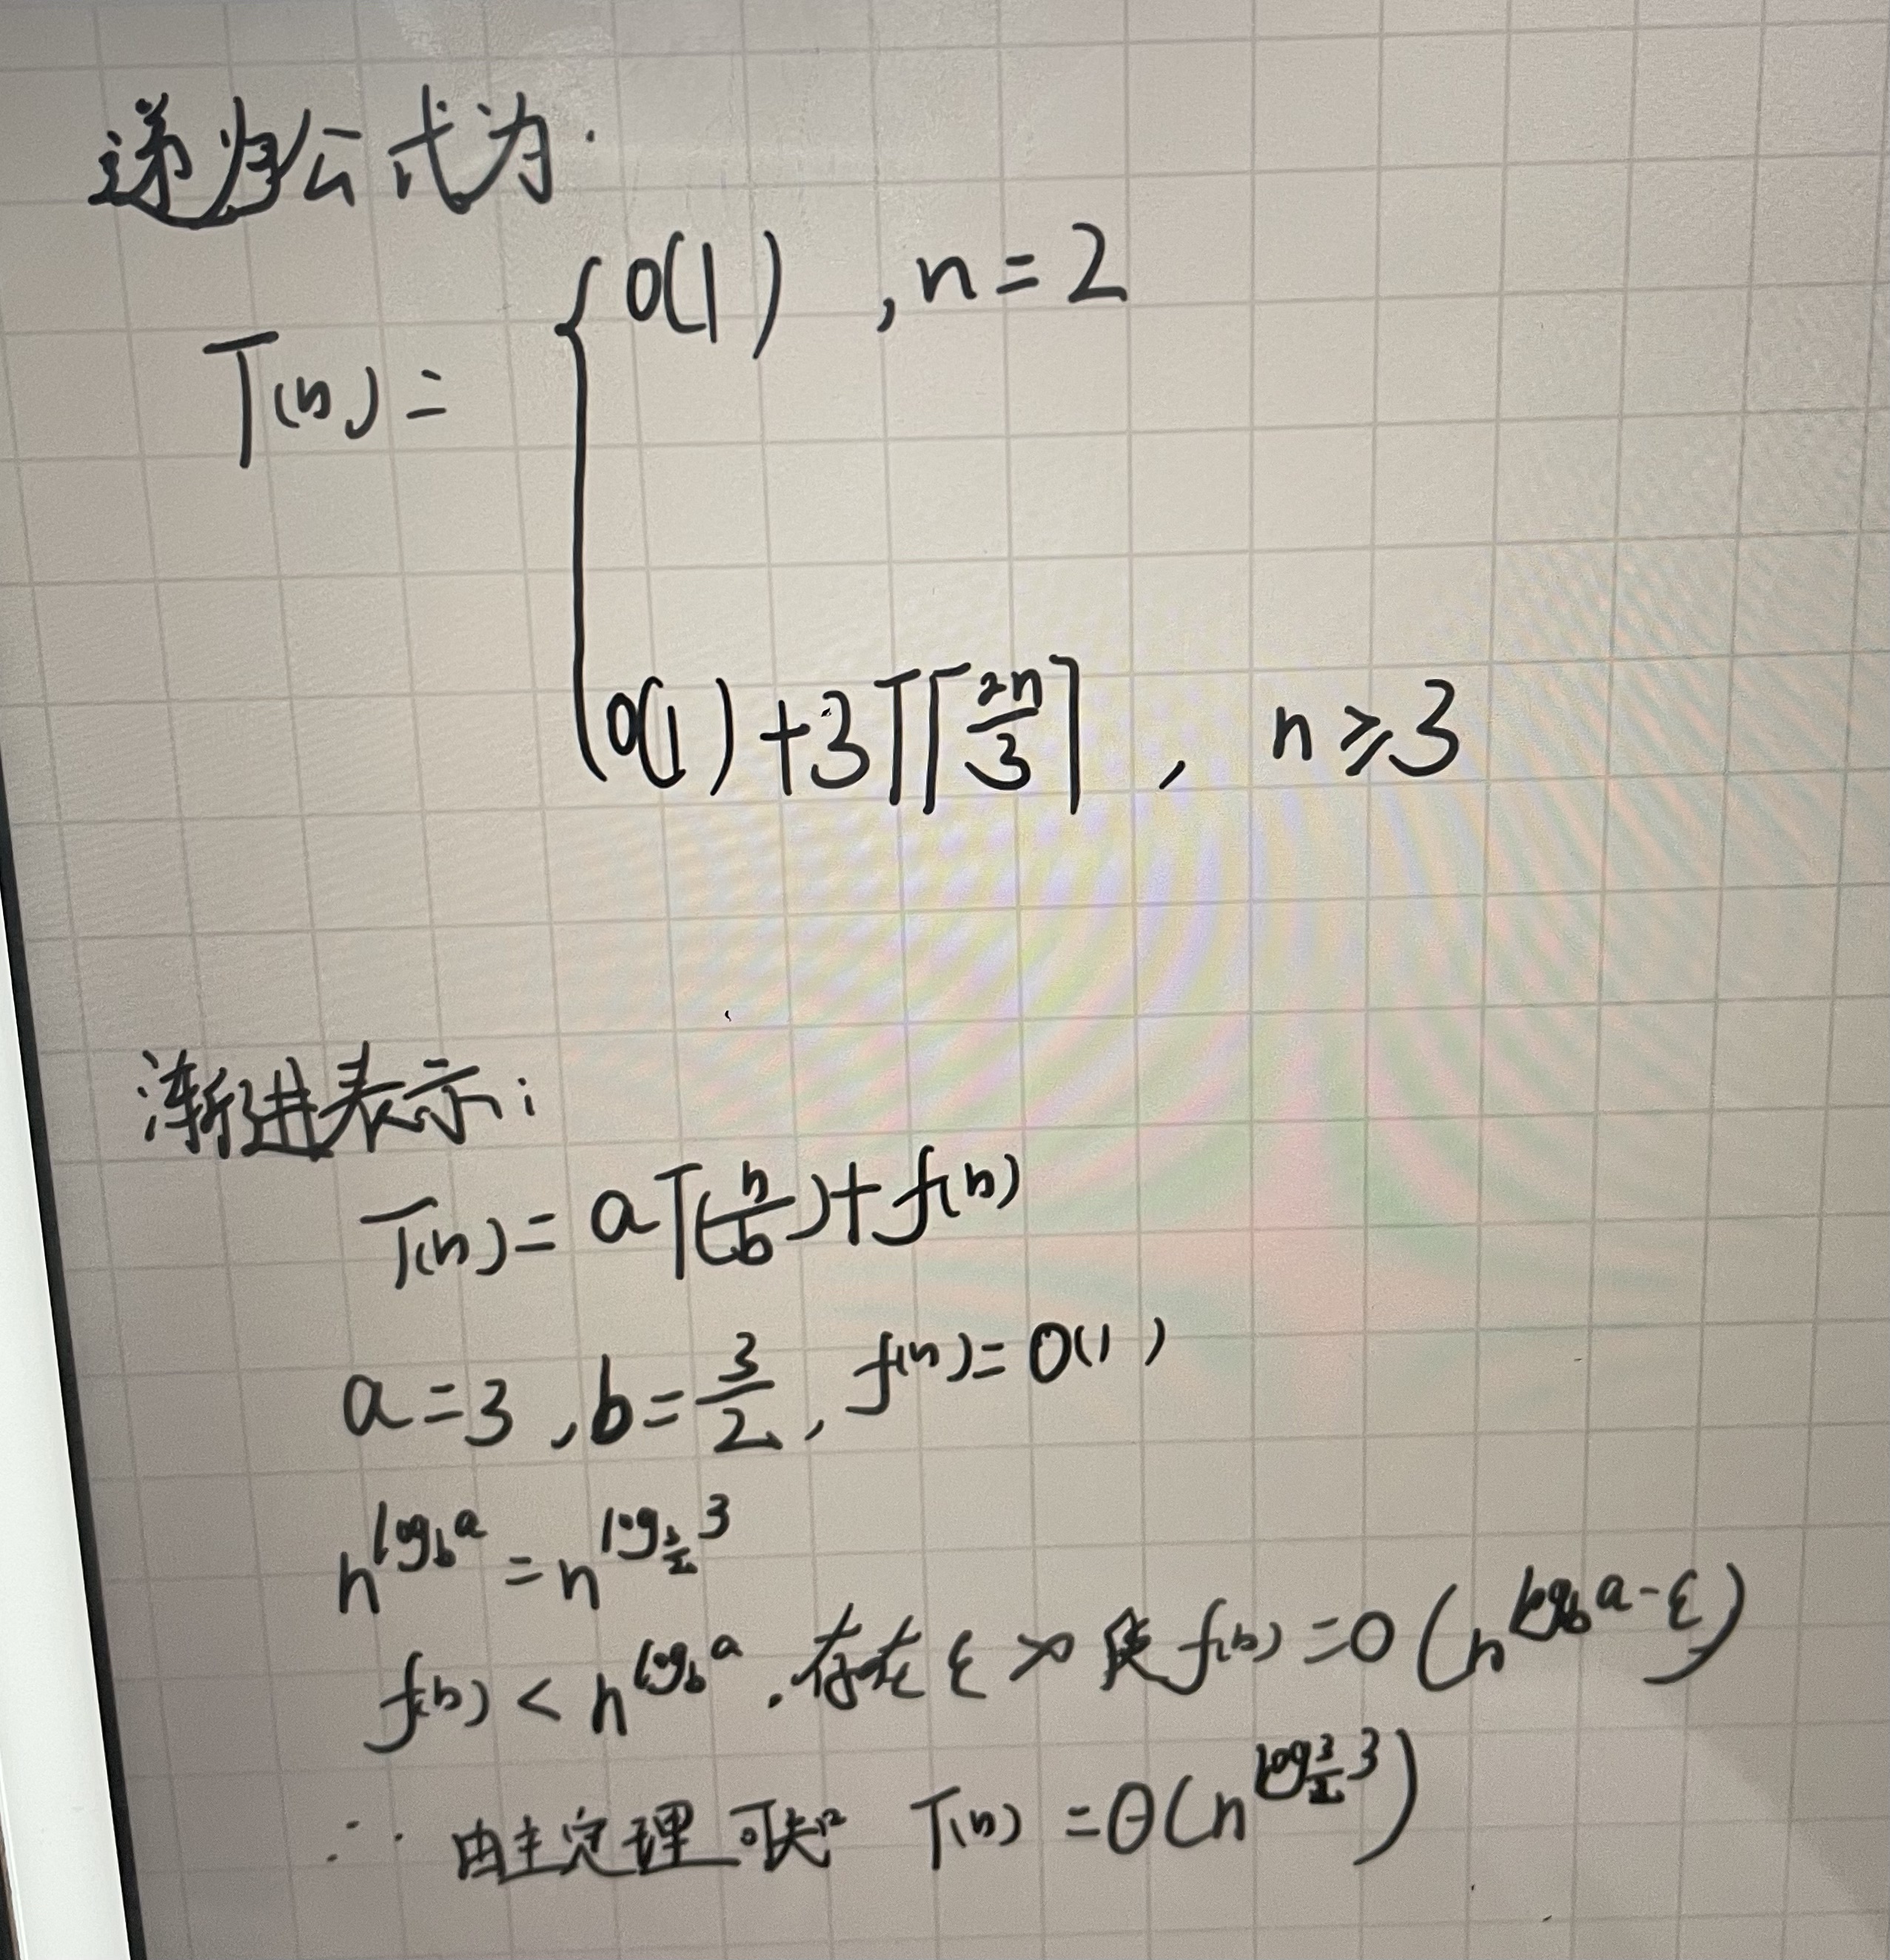 递归公式为:
T(n) = { O(1) , n = 2
O(1) + 3T⌈2n/3⌉ , n ≥ 3
渐进表示:
T(n) = aT(n/b) + f(n)
a = 3 , b = 3/2 , f(n) = O(1)
n^(log_b a) = n^(log_(3/2) 3)
f(n) < n^(log_b a) . 存在 ε >0 使 f(n) = O(n^(log_b a - ε))
∴ 由主定理可知 T(n) = θ(n^(log_(3/2) 3))